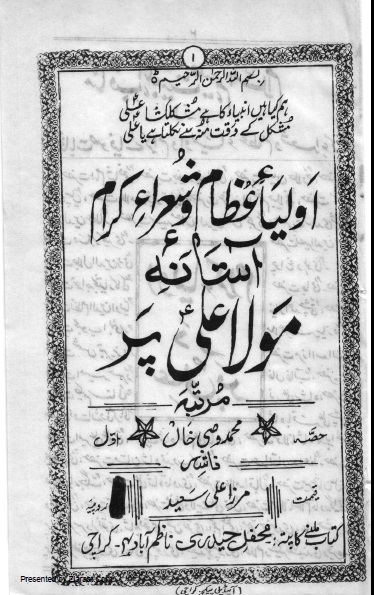 ۱
بسم اللہ الرحمن الرحیم
ہم کیا ہیں انبیاء کا ہے مشکل کشا علیؑ
مشکل کے وقت منہ سے نکلتا ہے یا علیؑ
اولیأ عظام و شعراءِ کرام
آستانہِ
مولا علیؑ پر
مرتبہ
حصہ محمد وصی خاں اول
ناشر
قیمت مرزا علی سعید روپیہ
کتاب ملنے کا پتہ: محفل حیدری ناظم آباد کراچی
کراچی
Presented by Ziaraat.Com